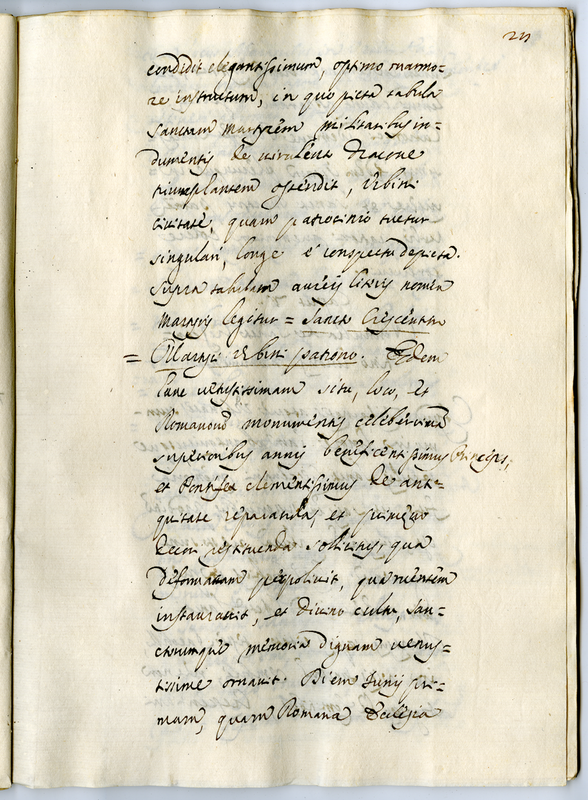 condidit elegantissimum, optimo marmo=
re instructum, in quo picta tabula
sanctum martyrem militaribus in=
dumentis de virulento Dracone
triumphantem ostendit, Urbini
Civitate, quam patrocinio tuetur
singulari, longe è conspectu depicta.
Supra tabulam aureis literis nomen
Martyris legitur = Sancto Crescentino
= Martyri Urbini patrono. Ædem
hanc vetustissimam situ, loco, et
Romanorum monumentis celeberrimam
superioribus annis beneficentissimus Princeps,
et Pontifex clementissimus de anti=
quitate reparanda, et priscoque
decori restituenda sollicitus, qua
deformatam perpolivit, qua ruentem
instauravit, et divino cultu, San=
ctorumque memoria dignam venus=
tissime ornavit. Diem Junij pri=
mam, quam Romana Ecclesia